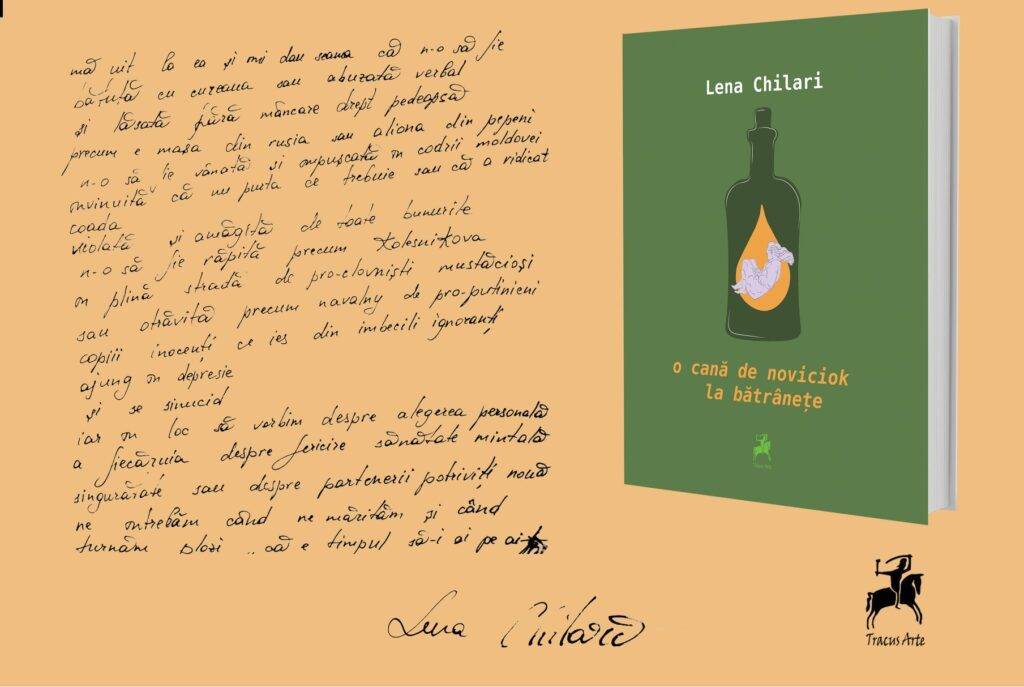 mă uit la ea și mi dau seama că n-o să fie
bătută cu cureaua sau abuzată verbal
și lăsată fără mâncare drept pedeapsă
precum e mașa din rusia sau aliona din pepeni
n-o să fie vânată și împușcată în codrii moldovei
învinuită că nu purta ce trebuie sau că a ridicat
coada
violată și amăgită de toate bunurile
n-o să fie răpită precum Kolesnikova
în plină stradă de pro-clovniști mustăcioși
sau otrăvită precum navalny de pro-putinieni
copiii inocenți ce ies din imbecili ignoranți
ajung în depresie
și se sinucid
iar în loc să vorbim despre alegerea personală
a fiecăruia despre fericire sănătate mintală
singurătate sau despre partenerii potriviți nouă
ne întrebăm când ne mărităm și când
turnăm plozi .. că e timpul să-i ai pe ai-
Lena Chilari
Lena Chilari
o cană de noviciok
la bătrânețe
Tracus Arte
Tracus Arte